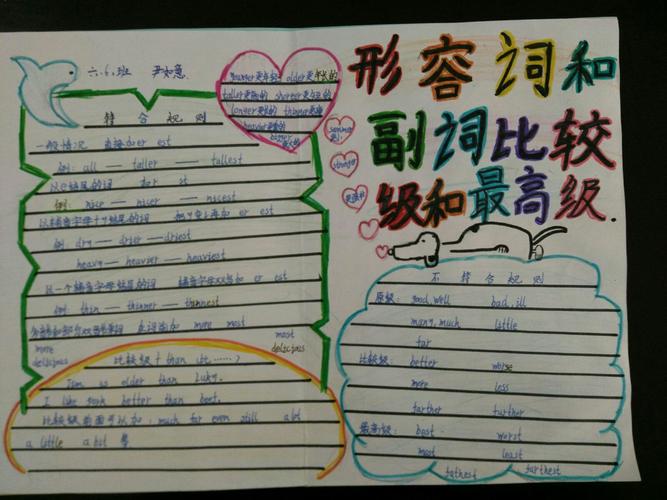 六.6.班 尹如意
younger更年轻 older更年长的
taller更高的 shorter更矮的
longer更长 thinner更瘦
heavier更重的
bigger
更大的
形容词和
副词比较
级和最高级.
符合规则
一般情况 直接加er est
例: all — taller — tallest
以e结尾的词 加r st
例: nice — nicer — nicest
以辅音字母+y结尾的词 把y变i再加 er est
例 dry — drier — driest
heavy — heavier — heaviest
以一个辅音字母结尾的词 辅音字母双写加 er est
例 thin — thinner — thinnest
在词前加 more most
more most
delicious delicious
比较级 + than
older than
I like pork better than beef.
比较级前面可以加: much far even still a lot
a little a bit 等
smaller
stronger
不符合规则
原级: good,well bad,ill
many,much little
far
比较级: better worse
more less
farther further
最高级: best worst
most least
farthest